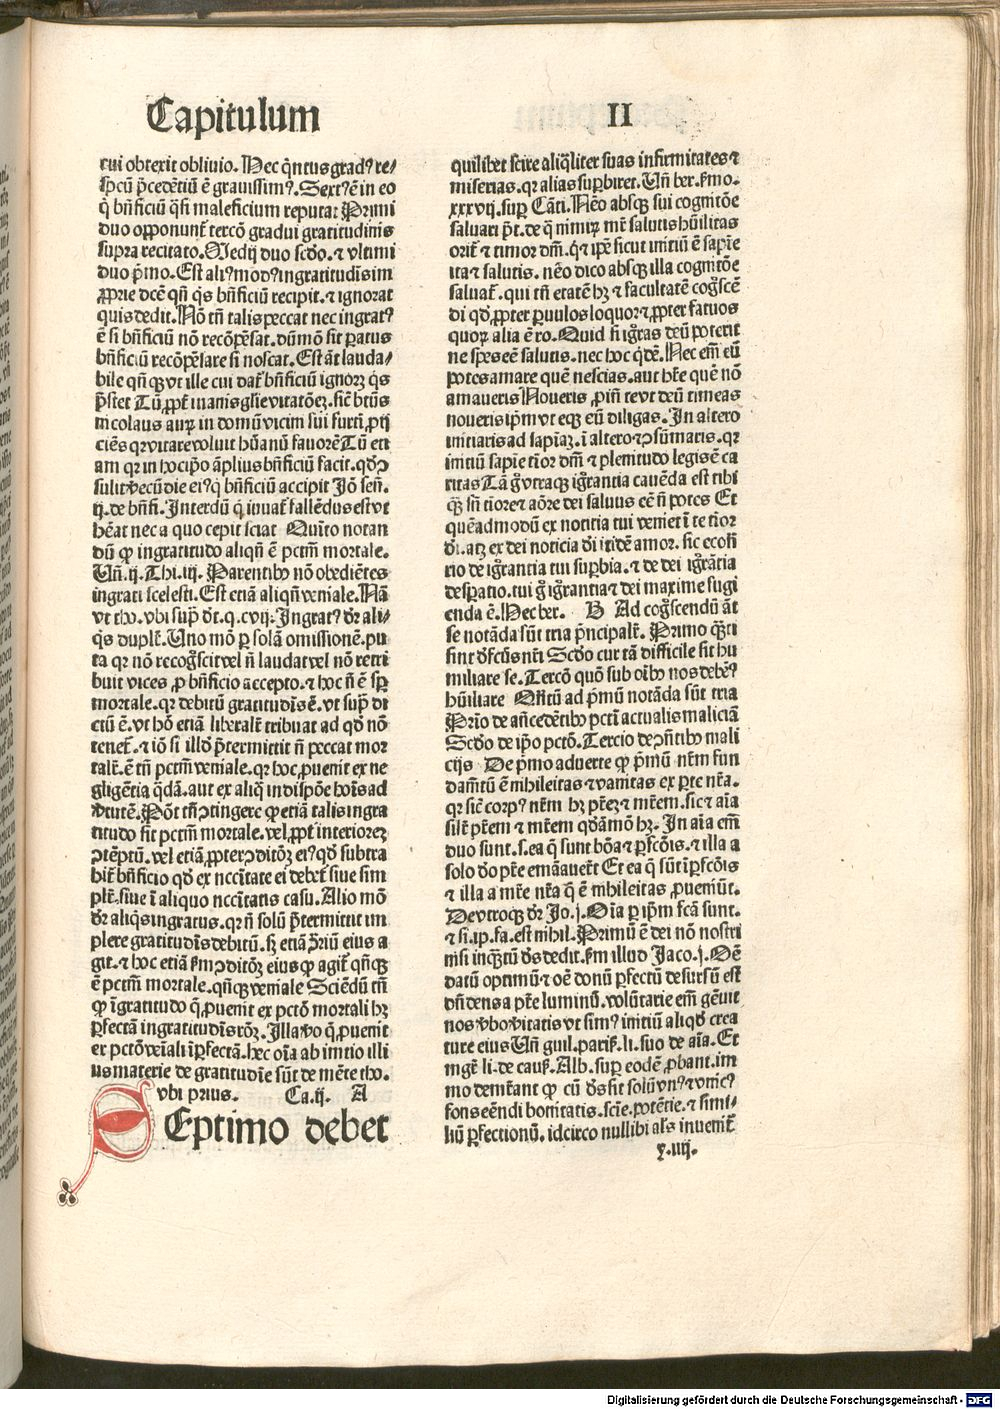 Capitulum II
cui obtexit obliuio. Nec q̃ntus gradꝰ re/
sp̃cu p̃cedẽtiũ ẽ grauissimꝰ. Sextꝰ ẽ in eo
q̃ bñficiũ q̃si maleficium reputat Primi
duo opponunt̃ tercõ gradui gratitudinis
supra recitato. Medij duo scd̃o. ⁊ vltimi
duo p̃mo. Est aliꝰ modꝰ ingratitudĩs im
ꝓprie dcẽ qñ q̃s bñficiũ recipit. ⁊ ignorat
quis dedit. Nõ tñ talis peccat nec ingratꝰ
ẽ si bñficiũ nõ recõpẽsat. dũmõ sit ꝑatus
bñficiũ recõpẽsare si noscat. Est ãt lauda/
bile qñqꝫ vt ille cui dat̃ bñficiũ ignorꝫ q̃s
p̃stet Tũ ꝓpt̃ inanis gl̃ie vitatõeꝫ. sic̃ btũs
nicolaus auꝝ in domũ vicim sui furti ꝓij
ciẽs qꝛ vitare voluit hũanũ fauorẽ Tũ eti
am qꝛ in hoc ip̃o ãplius bñficiũ facit. qd̃ ↄ
sulit verecũdie eiꝰ q̃ bñficiũ accipit Jõ señ.
ij. de bñfi. Interdũ q̃ iuuat̃ fallẽdus est vt
hẽat nec a quo cepit sciat Quĩto notan
dũ ꝙ ingratitudo aliqñ ẽ pctm̃ mortale.
Vñ. ij. Thi. iij. Parentibꝰ nõ obediẽtes
ingrati scelesti. Est etiã aliqñ veniale. Nã
vt tho. vbi sup̃ dt̃. q. cvij. Ingratꝰ dr̃ ali/
q̃s duplr̃. Uno mõ ꝑ solã omissionẽ. pu
ta qꝛ nõ recogĩscit vel ñ laudat vel nõ retri
buit vices ꝓ bñficio accepto. ⁊ hoc ñ ẽ sꝑ
mortale. qꝛ debitũ gratitudĩs ẽ. vt sup̃ di
ctũ ẽ. vt hõ etiã liberalr̃ tribuat ad qd̃ nõ
tenet̃. ⁊ iõ si illd̃ p̃termittit ñ peccat mor
talr̃. ẽ tñ pctm̃ veniale. qꝛ hoc ꝓuenit ex ne
gligẽtia q̃dã. aut ex aliq̃ indispõe hoĩs ad
v̓tutẽ. Põt tñ ↄtingere ꝙ etiã talis ingra
titudo sit pctm̃ mortale. vel ꝓpt̃ interiorez
ↄtẽptũ. vel etiã ꝓpter ↄditõꝫ eiꝰ qd̃ subtra
hit̃ bñficio qd̃ ex nccĩtate ei debet̃ siue sim
plr̃. siue ĩ aliquo nccĩtatis casu. Alio mõ
dr̃ aliq̃s ingratus. qꝛ ñ solũ p̃termittit im
plere gratitudĩs debitũ. sꝫ etiã ↄ̃riũ eius a
git. ⁊ hoc etiã ẜm ↄditõꝫ eius ꝙ agit̃ qñqꝫ
ẽ pctm̃ mortale. qñqꝫ veniale Sciẽdũ tñ
ꝙ ĩgratitudo q̃ ꝓuenit ex pctõ mortali hꝫ
ꝑfectã ingratitudĩs rõꝫ. Illa v̓o q̃ ꝓuenit
ex pctõ veĩali ĩꝑfectã. hec oĩa ab initio illi
us materie de gratitudĩe sũt de mẽte tho.
vbi prius. Ca. ij. A
SEptimo debet
quilibet scire aliq̃liter suas infirmitates ⁊
miserias. qꝛ alias supbiret. Vñ ber. ẜmo.
xxxvij. suꝑ Cãti. Nẽo absqꝫ sui cognitõe
saluari p̃t. de q̃ nimiꝝ mr̃ salutis hũilitas
orit̃ ⁊ timor dñi. q̃ ⁊ ip̃e sicut initiũ ẽ sapĩe
ita ⁊ salutis. nẽo dico absqꝫ illa cognitõe
saluat̃. qui tñ etatẽ hꝫ ⁊ facultatẽ cogĩscẽ
di qd̃ ꝓpter paruulos loquor ⁊ ꝓpter fatuos
quoꝝ alia ẽ rõ. Quid si igr̃as deũ poterit
ne spes eẽ salutis. nec hoc q̃dẽ. Nec em̃ eũ
potes amare quẽ nescias. aut hr̃e quẽ nõ
amaueris Noueris ꝓiñ te vt deũ timeas
noueris ip̃m vt eqꝫ eũ diligas. In altero
initiaris ad sapĩaꝫ. ĩ altero ⁊ ↄsũmaris. qꝛ
initiũ sapĩe tĩor dñi ⁊ plenitudo legis ẽ ca
ritas Tã g̃ vtraqꝫ igr̃antia cauẽda est tibi
q̃ sñ tĩore ⁊ aõre dei saluus eẽ ñ potes Et
quẽadmodũ ex notitia tui veniet ĩ te tĩor
dei. atqꝫ ex dei noticia dei itidẽ amor. sic ecoñ
rio de igr̃antia tui suꝑbia. ⁊ de dei igr̃ãtia
desꝑatio. tui g̃ igr̃antia ⁊ dei maxime fugi
enda ẽ. Hec ber. B Ad cogĩscendũ ãt
se notãda sũt tria p̃ncipalr̃. Primo q̃ti
sint dẽfcũs nr̃i Scd̃o cur tã difficile sit hu
miliare se. Tercõ quõ sub oĩbꝰ nos debẽꝰ
hũiliare Qñtũ ad p̃mũ notãda sũt tria
Prĩo de añcedẽtibꝰ pctĩ actualis maliciã
Scd̃o de ip̃o pctõ. Tercio de ↄñtibꝰ mali
cijs De p̃mo aduerte ꝙ p̃mũ nr̃m fun
damtũ ẽ nihileitas ⁊ vanitas ex ꝑte nr̃a.
qꝛ sic̃ corpꝰ nr̃m hꝫ pr̃eꝫ ⁊ mr̃em. sic ⁊ aĩa
silr̃ pr̃em ⁊ mr̃em qd̃ãmõ hꝫ. In aĩa em̃
duo sunt. s. ea q̃ sunt bõa ⁊ ꝑfcõis. ⁊ illa a
solo dõ pr̃e emãauer̃t Et ea q̃ sũt ĩꝑfcõis
⁊ illa a mr̃e nr̃a q̃ ẽ nihileitas ꝓueniũt.
De vtroqꝫ dr̃ Jo. j. Oĩa ꝑ ip̃m fcã sunt.
⁊ si. ip. fa. est nihil. Primũ ẽ dei nõ nostri
nisi inq̃ʒtũ ds̃ dedit. ẜm illud Jaco. j. Oẽ
datũ optimũ ⁊ oẽ donũ ꝑfectũ desursũ est
dñdens a pr̃e luminũ. volũtarie em̃ gẽuit
nos v̓bo v̓itatis vt simꝰ initiũ aliqd̃ crea
ture eius Vñ guil. parisꝭ. li. suo de aĩa. Et
mgr̃ li. de causꝭ. Alb. suꝑ eodẽ ꝓbant. im
mo demr̃ant ꝙ cũ ds̃ sit solũ vnꝰ ⁊ vnicꝰ
fons eẽndi bonitatis. scie. potẽtie. ⁊ simi/
liũ ꝑfectionũ. idcirco nullibi al̃s inuenit̃
x. iiij.
Digitalisierung gefördert durch die Deutsche Forschungsgemeinschaft - DFG